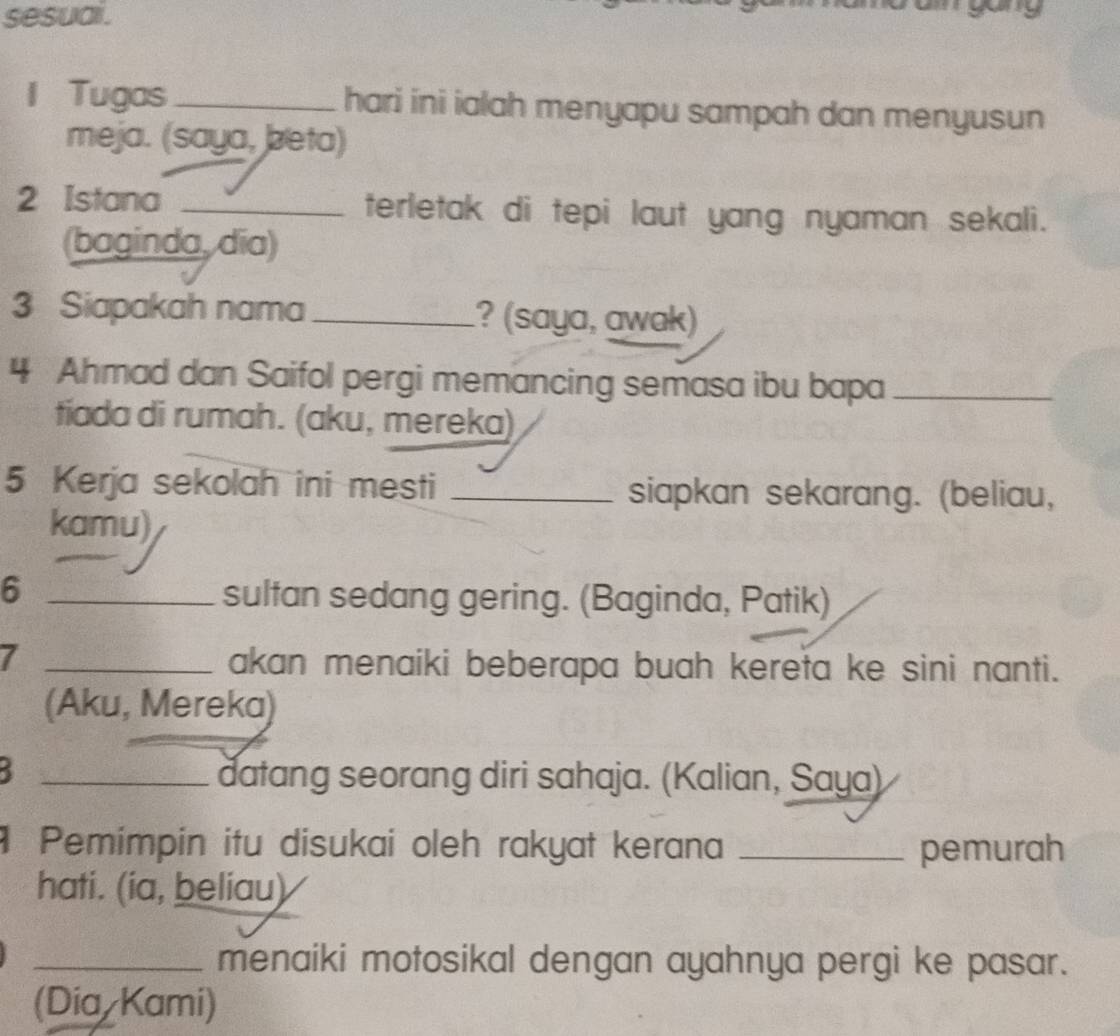 sesuai.
1 Tugas ________ hari ini ialah menyapu sampah dan menyusun
meja. (saya, beta)
2 Istana ________ terletak di tepi laut yang nyaman sekali.
(baginda, dia)
3 Siapakah nama ________? (saya, awak)
4 Ahmad dan Saifol pergi memancing semasa ibu bapa ________
tiada di rumah. (aku, mereka)
5 Kerja sekolah ini mesti ________ siapkan sekarang. (beliau,
kamu)
6 ________ sultan sedang gering. (Baginda, Patik)
7 ________ akan menaiki beberapa buah kereta ke sini nanti.
(Aku, Mereka)
8 ________ datang seorang diri sahaja. (Kalian, Saya)
9 Pemimpin itu disukai oleh rakyat kerana ________ pemurah
hati. (ia, beliau)
________ menaiki motosikal dengan ayahnya pergi ke pasar.
(Dia, Kami)